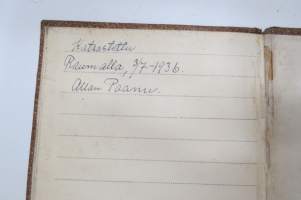 Katsastettu
Raumalla, 3/7-1936.
Allan Paanu.